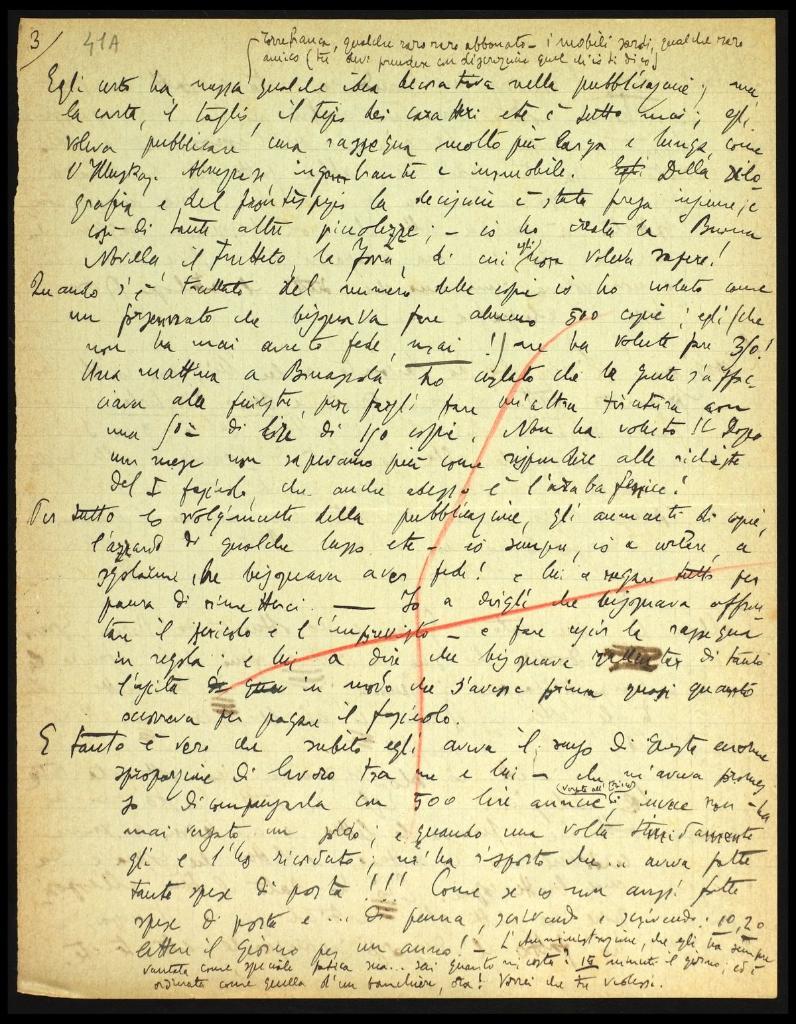 3/ 41A
Torrefranca, qualche raro raro abbonato - i mobili sardi, qualche raro
amico (tu devi prendere con discrezione quel di ciò ti dico)
Egli certo ha messo qualche idea decorativa nella pubblicazione; ma
la carta, il taglio, il tipo dei caratteri etc è tutto mio; egli
voleva pubblicare una rassegna molto più larga e lunga, come
ingombrante e immobile. Della xilo-
grafia e del frontespizio la decisione è stata presa insieme, e
così di tante altre piccolezze; - io ho creato la Buona
Novella il Frutteto, la di cui egli non voleva sapere!
Quando s'è trattato del numero delle copie io ho urlato come
un forsennato che bisognava fare almeno 500 copie; egli (che
non ha mai avuto fede, mai!) ne ha volute fare 350!
Una mattina a ho urlato che la gente s'affac-
ciava alle finestre, per fargli fare un'altra tiratura
una di lire di 150 copie. Non ha voluto!! Dopo
un mese non sapevamo più come rispondere alle richieste
del I fascicolo, che anche adesso è l'araba fenice!
Per tutto lo svolgimento della pubblicazione, gli aumenti di copie,
l'azzardo di qualche lusso etc - io sempre, io a urlare, a
che bisognava aver fede! e lui a negare tutto per
paura di rimetterci. — Io a dirgli che bisognava affron-
tare il pericolo e l'imprevisto - e fare uscir la rassegna
in regola; e lui a dire che bisognava di tanto
l'uscita in modo che s'avesse prima quasi quanto
occorreva per pagare il fascicolo.
E tanto è vero che subito egli aveva il senso di questa enorme
sproporzione di lavoro tra me e lui - che m'aveva promes-
so di compensarla con 500 lire annue, invece non - ha
mai versato un soldo; e quando una volta timidamente
gli e l'ho ricordato, m'ha risposto che... aveva fatte
tante spese di posta!!! Come se io non avessi fatte
spese di posta e ... di penna, scrivendo e scrivendo: 10, 20
lettere il giorno per un anno! - L'Amministrazione, che egli ha sempre
vantata come speciale fatica sua... sai quanto mi costa? 15 minuti il giorno, ed è
ordinata come quella d'un banchiere, ora! Vorrei che tu vedessi.